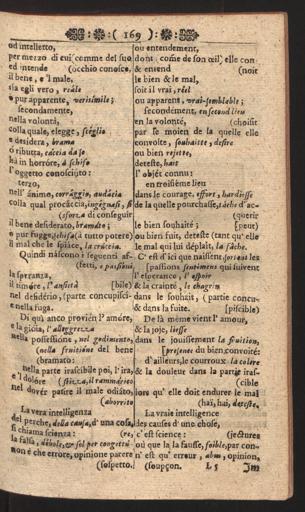 ( 169 )
od intelletto,
per mezzo di cui, comme del suo
ed intende (occhio conosce,
il bene, e 'l male,
sia egli vero, reále
o pur apparente, verisimile;
secondamente,
nella volontá,
colla quale, elegge, scéglie
e desidera, brama
o ributta, cáccia da se
há in horróre, à schifo
l'oggetto conosciúto:
terzo,
nell' ánimo, corrággio, audácia
colla qual procáccia, ingégnasi, si
(sforza di conseguir
il bene desiderato, bramato;
o pur fugge, schifa (à tutto potere)
il mal che le spiáce, la cruccia.
Quindi náscono i seguenti af-
(fetti, e passioni,
la speranza,
il timóre, l'ansietà [bile)
nel desidério, (parte concupisci-
e nella fuga.
Di quì anco provién l'amóre,
e la gioia, l'allegrezza
nella possessióne, nel godimento,
(nella fruitióne del bene
(bramato:
nella parte irascíbile poi, l'ira,
e'l dolóre (stizza, il rammárico
nel dovér pasire il male odiáto,
(aborrito
La vera intelligenza
del perche, della causa, d'una cosa,
si chiama scienza: (re,
la falsa, débole, e sol per congettú
non é che errore, opinione parere
(sospetto.
ou entendement,
dont (come de son œil) elle con-
& entend (noit
le bien & le mal,
soit il vrai, réel
ou apparent, vrai-semblable;
secondément, en second lieu
en la volonté, (choisit
par le moien de la quelle elle
convoite, souhaitte, desire
ou bien rejette,
deteste, hait
l'objét connu:
en troisième lieu
dans le courage, effort, hardiesse
de la quelle pourchasse, tâche d'ac-
(querir
le bien souhaité; (peut)
ou bien fuit, deteste (tant qu'elle
le mal qui lui déplait, la fâche.
C'est d'ici que naissent sortent les
[passions sentimens qui suivent
l'esperance, l'espoir
& la crainte, le chagrin
dans le souhait, (partie concu-
& dans la fuite. [piscible)
De là même vient l'amour,
& la joie, liesse
dans le jouissement la fruition,
[presence du bien convoité:
d'ailleurs, le courroux, la colére
& la douleur dans la partie iras-
(cible
lors qu'elle doit endurer le mal
(haï, haï, deteste,
La vraie intelligence
des causes d'une chose,
c'est science: (jectures
où que la la fausse, foible, par con-
n'est qu'erreur, abus, opinion,
(soupçon. L 5 Im